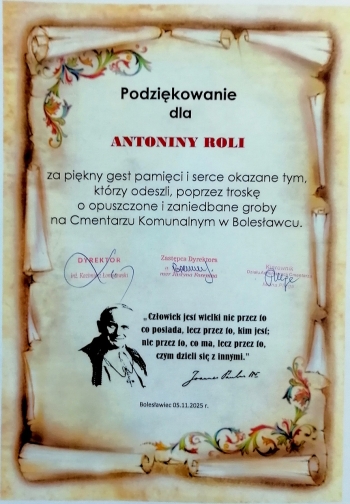 Podziękowanie
dla
ANTONINY ROLI
za piękny gest pamięci i serce okazane tym,
którzy odeszli, poprzez troskę
o opuszczone i zaniedbane groby
na Cmentarzu Komunalnym w Bolesławcu.
DYREKTOR
inż. Kazimierz
Zastępca Dyrektora
mgr
Kierownik
„Człowiek jest wielki nie przez to
co posiada, lecz przez to, kim jest;
nie przez to, co ma, lecz przez to,
czym dzieli się z innymi."
Bolesławiec 05.11.2025 r.